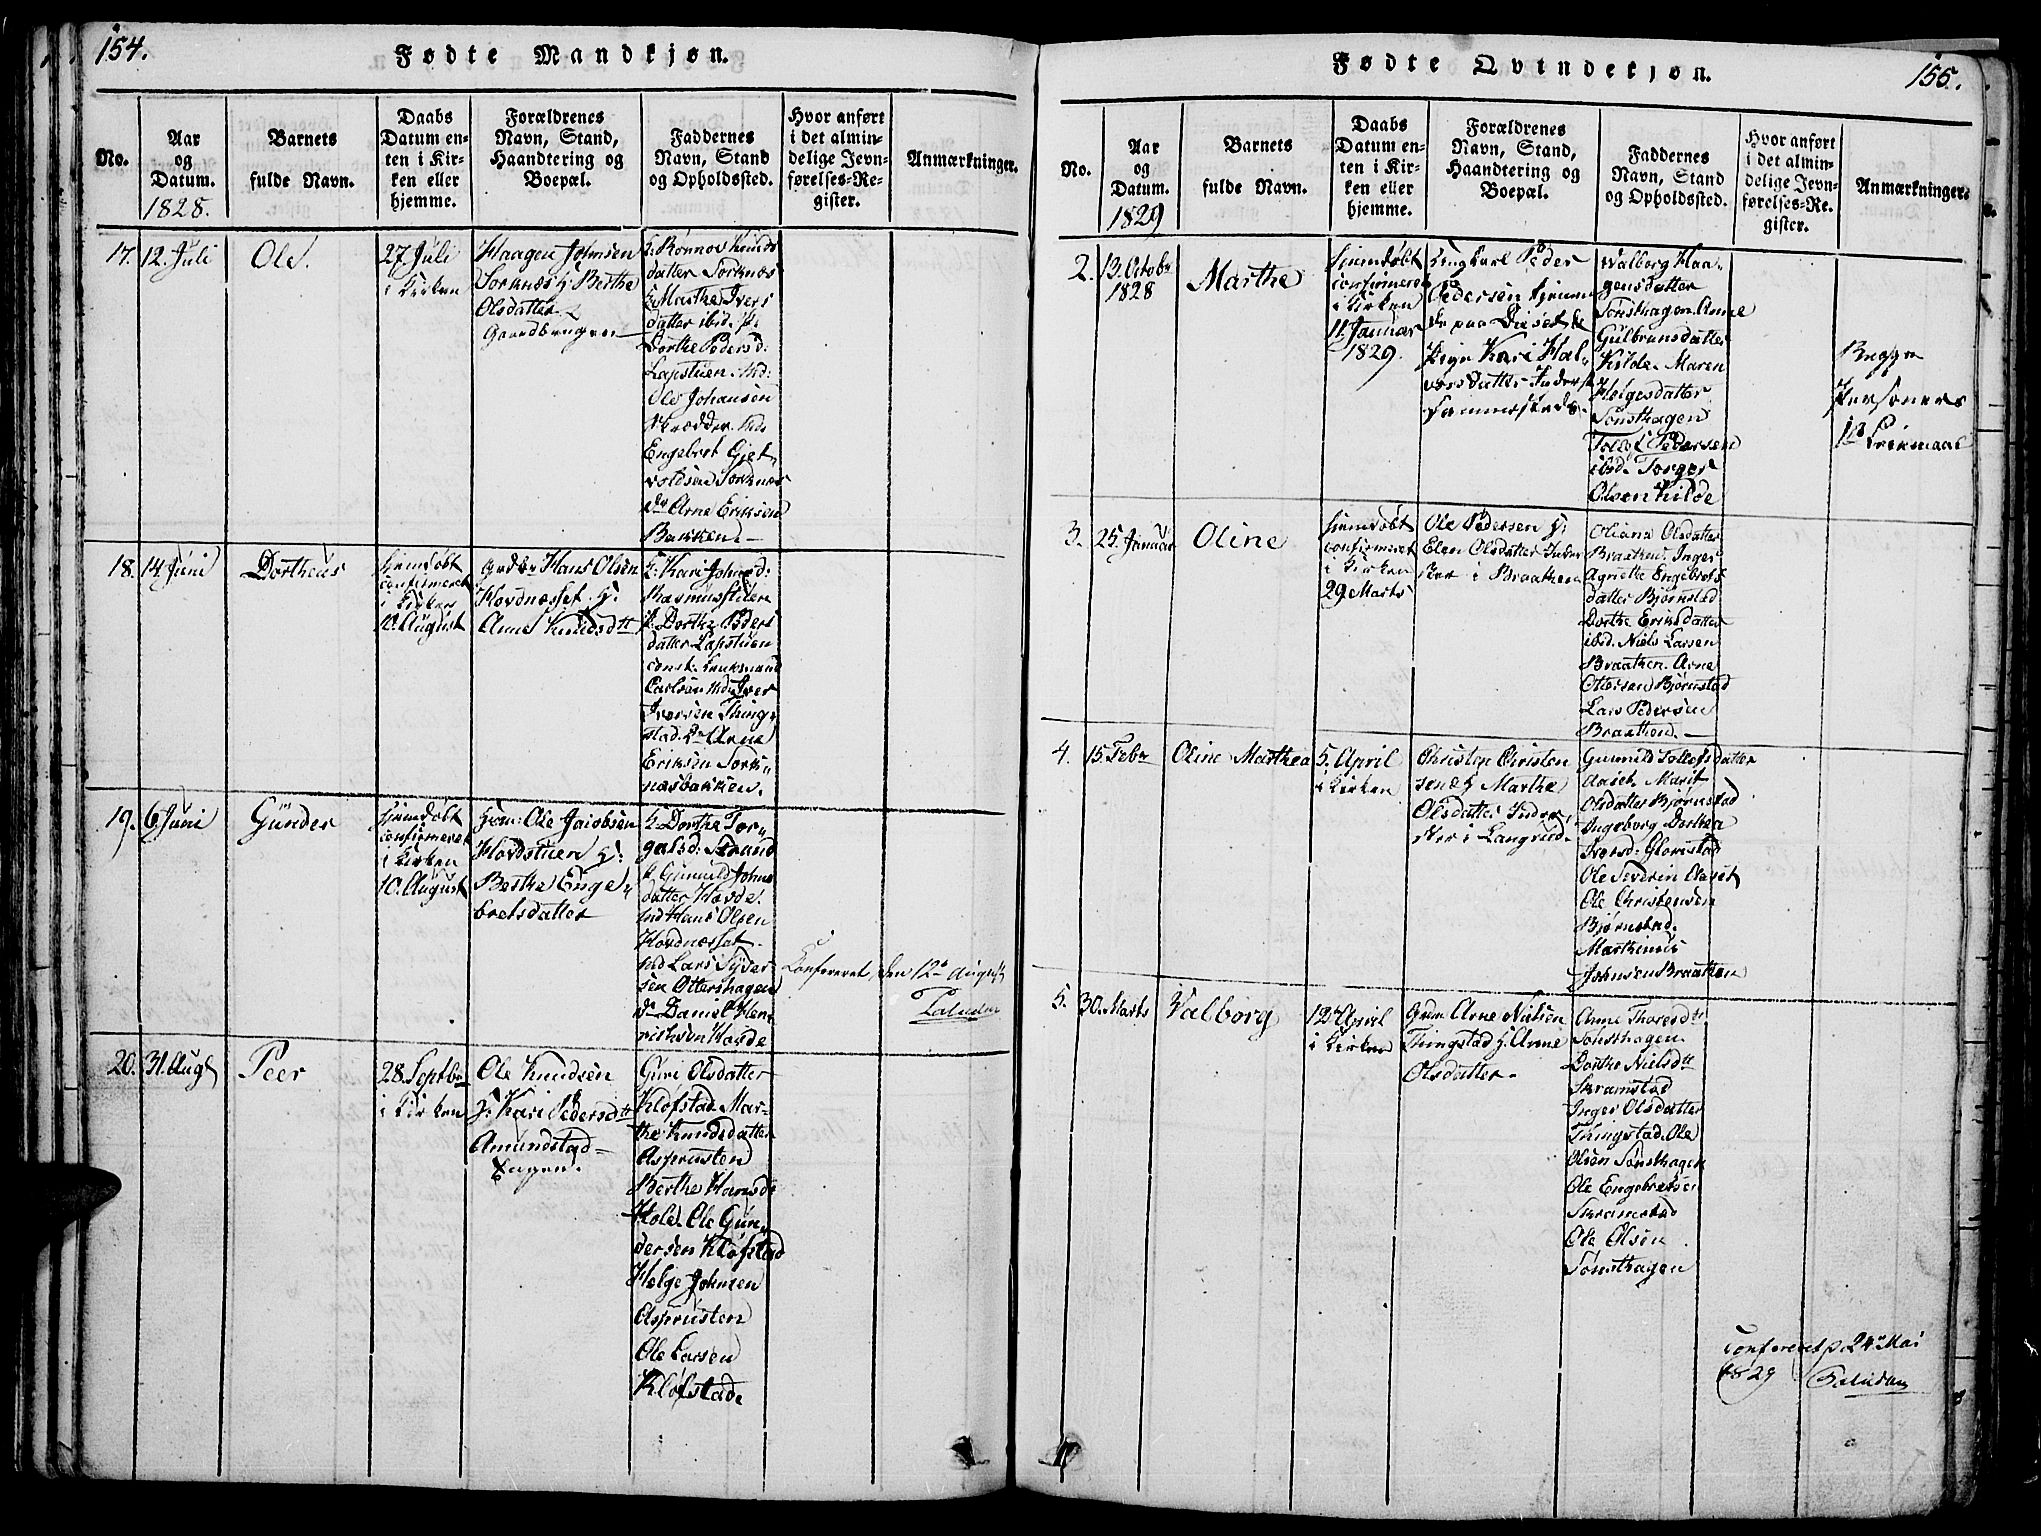 154.
Fødte Mandkjøn.
No.
Aar
og
Datum.
1828.
Barnets
fulde Navn.
Daabs
Datum en-
ten i Kir-
ken eller
hjemme.
Forældrenes
Navn, Stand,
Haandtering og
Boepæl.
Faddernes
Navn, Stand
og Opholdssted.
Hvor anført
i det almin-
delige Jevn-
førelses-Re-
gister.
Anmærkninger.
17.
12. Juli
Ole.
27. Juli
i Kirken
Haagen Johnsen
Sorknæs h: Berthe
Olsdatter
Gaardbrugere
k: Rønnov Knuds
datter Sorknæs
k: Marthe Ivers
datter ibid. p:
Dorthe Pedersd:
Lapstuen. md:
Ole Johansen
Skrædder. md:
Engebret Gjet
voldsen Sorknæs
Arne Eriksen
Bakken.
18.
14. Juni
Dortheus
hjemdøbt
confirmeret
i Kirken
10. August
Hans Olsen
Hovdnæsset. h:
Anne Knudsdtt
k: Kari Johnsd:
Rasmusstuen
p: Dorthe Peders
datter Lapstuen
const. Lensmand
Carlsen md: Iver
Iversen Thing-
stad. Arne
Eriksen Sork-
næsbakken.
19.
6. Juni
Gunder
hjemdøbt
confirmeret
i Kirken
10. August
Ole Jacobsen
Hovdstuen h:
Berthe Enge-
bretsdatter
k: Dorthe Tor-
galsd: Strand
k: Gunnild Johns
datter Hovde.
md Hans Olsen
Hovdnæsset
md Lars Syver
sen Ottershagen
Daniel Hen
richsen Hovde
Confereret, den 12te August
Paludan
20.
31. Aug.
Peer
28. Septbr
i Kirken
Ole Knudsen
h: Kari Pedersdtt
Amundstad-
hagen.
Guri Olsdatter
Kløfstad. Mar-
the Knudsdatter
Asprusten
Berthe Hansd:
Hole. Ole Gun
dersen Kløfstad
Helge Johnsen
Asprusten
Ole Larsen
Kløfstad
155.
Fødte Qvindekjøn.
No.
Aar
og
Datum.
1829
Barnets
fulde Navn.
Daabs
Datum en-
ten i Kir-
ken eller
hjemme.
Forældrenes
Navn, Stand,
Haandtering og
Boepæl.
Faddernes
Navn, Stand
og Opholdssted.
Hvor anført
i det almin-
delige Jevn-
førelses-Re-
gister.
Anmærkninger.
2.
13. Octobr
1828
Marthe
hjemdøbt
confirmeret
i Kirken
11. Januar
1829.
Ungkarl Peder
Pedersen hjemme
de paa Diset &
Pige Kari Hal-
vorsdatter Inderst
sammesteds.
Walborg Haa-
gensdatter
Sønsthagen. Anne
Gulbransdatter
Kilde. Maren
Helgesdatter
Sønsthagen
Tollef Pedersen
ibid. Torger
Olsen Kilde
Begge
Personers
1ste Leiermaal
3.
25. Januar
Oline
hjemdøbt
confirmeret
i Kirken
29. Marts
Ole Pedersen h:
Elen Olsdatter Inder
ster i Braathen
Oliana Olsdatter
Braathen. Inger
Agnethe Engebrets
datter Bjørnstad
Dorthe Eriksdatter
ibid. Niels Larsen
Braathen. Arne
Ottersen Bjørnstad
Lars Pedersen
Braathen.
4.
15. Febr
Oline Marthea
5. April
i Kirken
Christen Christen
sen & Marthe
Olsdatter Inder-
ster i Langrud.
Gunnild Tollefsdatter
Aaset. Marit
Olsdatter Bjørnstad
Ingeborg Dorthea
Iversd: Glomstad
Ole Severin Olaset
Ole Christensen
Bjørnstad.
Marthinus
Johnsen Braathen
5.
30. Marts
Valborg
12te April
i Kirken
Arne Nielsen
Thingstad h: Anne
Olsdatter.
Anne Thoresdtt
Sønsthagen
Dorthe Nielsdtt
Skramstad
Inger Olsdatter
Thingstad. Ole
Olsen Sønsthagen
Ole Engebretsen
Skramstad
Ole Olsen
Sønsthagen
Confereret p. 24de Mai
1829
Paludan